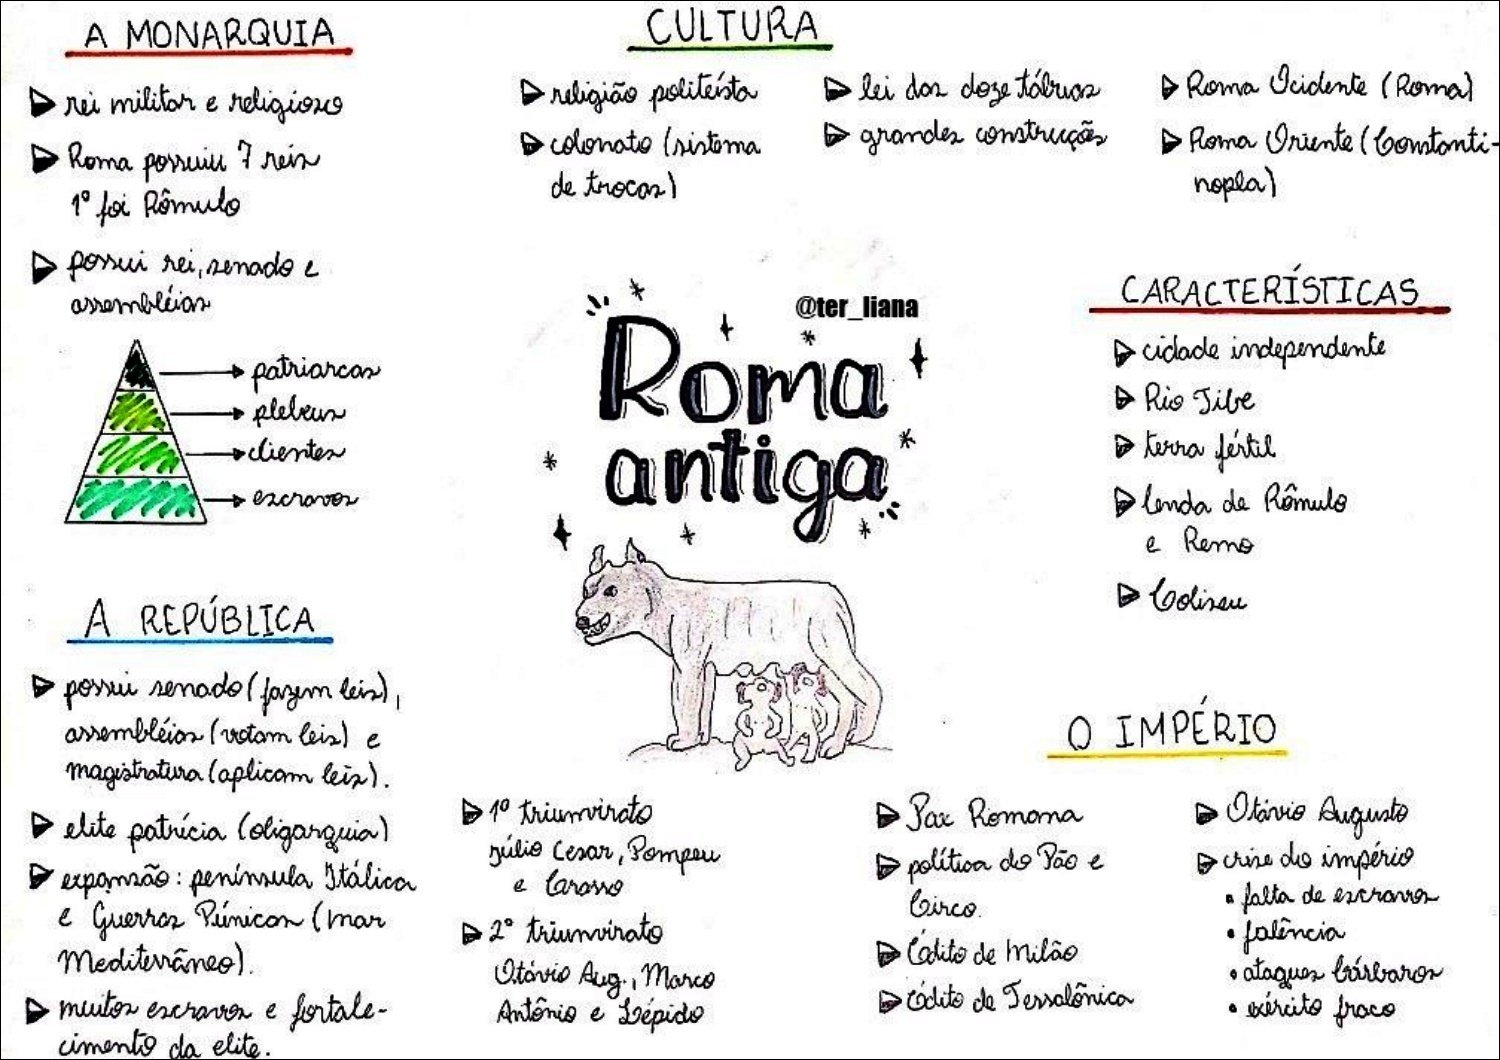 A MONARQUIA
rei militar e religioso
Roma possuiu 7 reis
1º foi Rômulo
possui rei, senado e
assembléias
patriarcas
plebeus
clientes
escravos
A REPÚBLICA
possui senado (fazem leis),
assembléias (votam leis) e
magistratura (aplicam leis).
elite patrícia (oligarquia)
expansão: península Itálica
e Guerras Púnicas (mar
Mediterrâneo).
muitos escravos e fortale-
cimento da elite.
CULTURA
religião politeísta
colonato (sistema
de trocas)
lei das doze tábuas
grandes construcções
Roma Ocidente (Roma)
Roma Oriente (Constanti-
nopla)
@ter_liana
Roma
antiga
1º triunvirato
júlio Cesar, Pompeu
e Crasso
2º triunvirato
Otávio Aug., Marco
Antônio e Lépido
CARACTERÍSTICAS
cidade independente
Rio Tibe
terra fértil
lenda de Rômulo
e Remo
Coliseu
O IMPÉRIO
Pax Romana
política do Pão e
Circo.
Édito de Milão
Édito de Tessalônica
Otávio Augusto
crise do império
• falta de escravos
• falência
• ataques bárbaros
• exército fraco